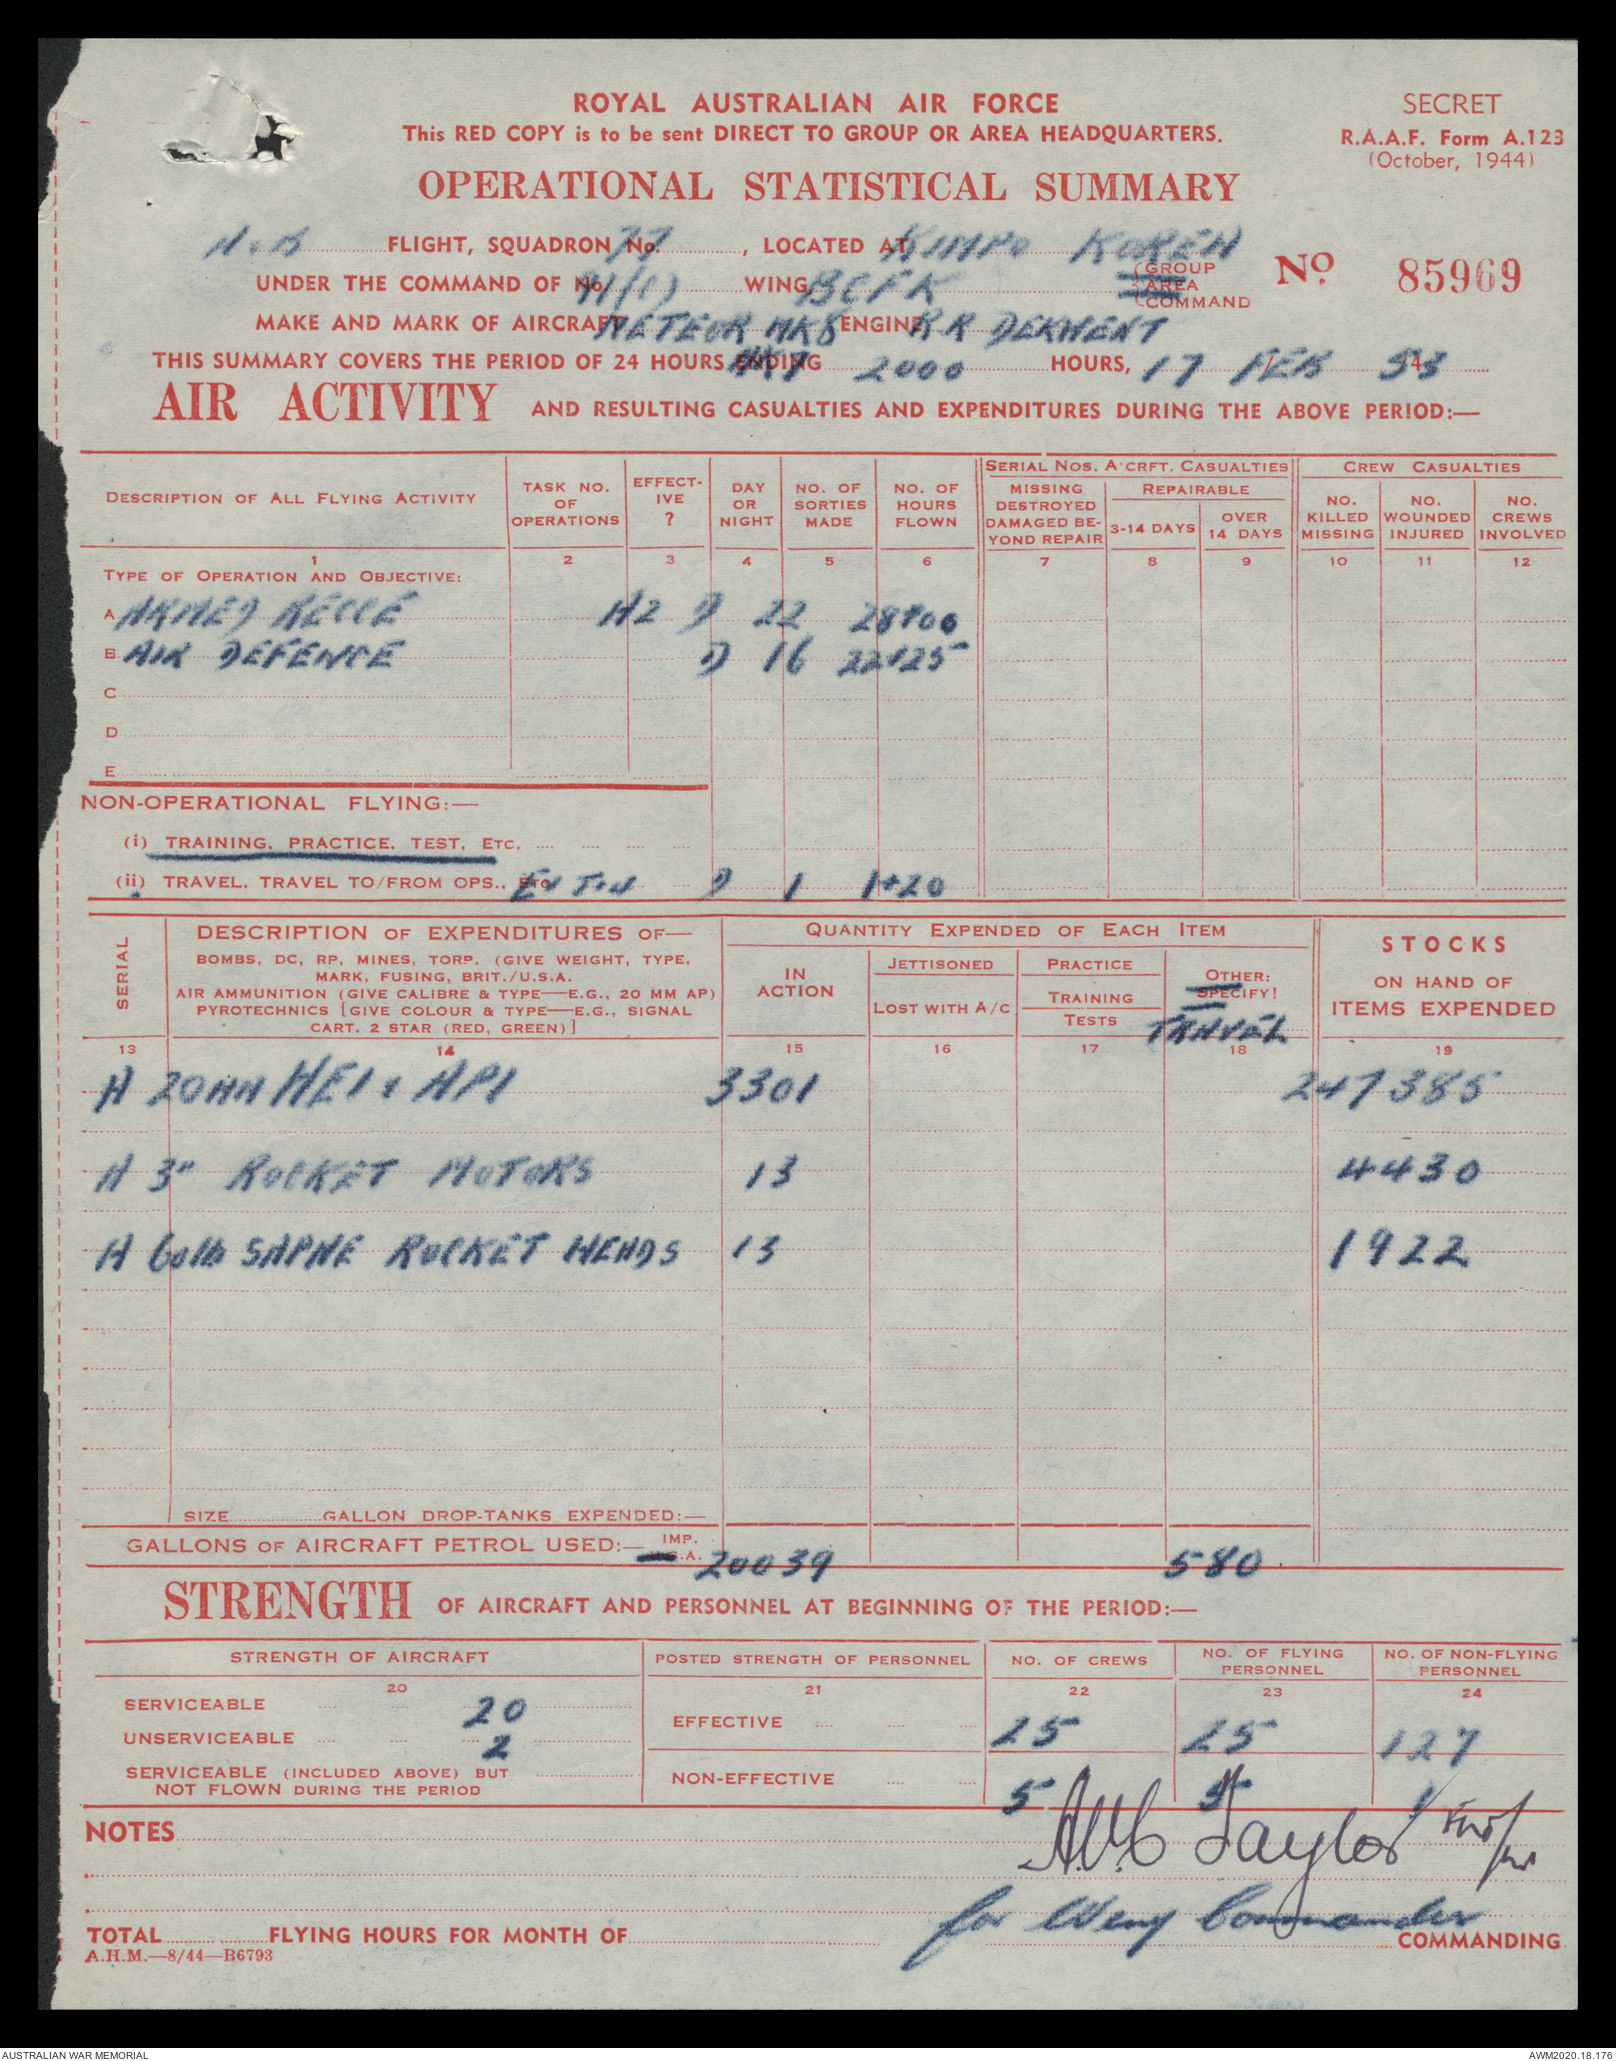 ROYAL AUSTRALIAN AIR FORCE
SECRET
This RED COPY is to be sent DIRECT TO GROUP OR AREA HEADQUARTERS.
R.A.A.F. Form A.123
(October, 1944)
OPERATIONAL STATISTICAL SUMMARY
FLIGHT, SQUADRON No. 77, LOCATED AT KIMPO KOREA
UNDER THE COMMAND OF No. 91(C) WING, BCFK GROUP AREA COMMAND
No. 85969
MAKE AND MARK OF AIRCRAFT METEOR MK8 ENGINE R R DERWENT
THIS SUMMARY COVERS THE PERIOD OF 24 HOURS ENDING 2000 HOURS, 17 FEB 53
AIR ACTIVITY AND RESULTING CASUALTIES AND EXPENDITURES DURING THE ABOVE PERIOD:—
DESCRIPTION OF ALL FLYING ACTIVITY
TASK NO. OF OPERATIONS
EFFECT-IVE ?
DAY OR NIGHT
NO. OF SORTIES MADE
NO. OF HOURS FLOWN
SERIAL NOS. A'CRFT. CASUALTIES
MISSING DESTROYED DAMAGED BE-YOND REPAIR
REPAIRABLE
3-14 DAYS
OVER 14 DAYS
CREW CASUALTIES
NO. KILLED MISSING
NO. WOUNDED INJURED
NO. CREWS INVOLVED
1 2 3 4 5 6 7 8 9 10 11 12
TYPE OF OPERATION AND OBJECTIVE:
A ARMED RECCE A2 D 22 28+00
B AIR DEFENCE D 16 22+25
C
D
E
NON-OPERATIONAL FLYING:—
(i) TRAINING, PRACTICE, TEST, ETC.
(ii) TRAVEL, TRAVEL TO/FROM OPS., ETC. D 1 1+20
SERIAL
DESCRIPTION OF EXPENDITURES OF—
BOMBS, DC, RP, MINES, TORP. (GIVE WEIGHT, TYPE,
MARK, FUSING, BRIT./U.S.A.
AIR AMMUNITION (GIVE CALIBRE & TYPE—E.G., 20 MM AP)
PYROTECHNICS [GIVE COLOUR & TYPE—E.G., SIGNAL
CART. 2 STAR (RED, GREEN)]
QUANTITY EXPENDED OF EACH ITEM
IN ACTION
JETTISONED
LOST WITH A/C
PRACTICE
TRAINING
TESTS
OTHER:
SPECIFY!
TRAVEL
STOCKS
ON HAND OF
ITEMS EXPENDED
13 14 15 16 17 18 19
A 20MM HEI & API 3301 247385
A 3" ROCKET MOTORS 13 4430
A 60lb SAPHE ROCKET HEADS 13 1922
SIZE GALLON DROP-TANKS EXPENDED:—
GALLONS OF AIRCRAFT PETROL USED:— IMP. U.S.A. 20039 580
STRENGTH OF AIRCRAFT AND PERSONNEL AT BEGINNING OF THE PERIOD:—
STRENGTH OF AIRCRAFT
POSTED STRENGTH OF PERSONNEL
NO. OF CREWS
NO. OF FLYING PERSONNEL
NO. OF NON-FLYING PERSONNEL
20 21 22 23 24
SERVICEABLE 20
EFFECTIVE 25 25 127
UNSERVICEABLE 2
SERVICEABLE (INCLUDED ABOVE) BUT
NOT FLOWN DURING THE PERIOD
NON-EFFECTIVE 5 5 1
NOTES
Taylor
for Wing Commander
TOTAL FLYING HOURS FOR MONTH OF
COMMANDING
A.H.M.—8/44—B6793
AUSTRALIAN WAR MEMORIAL
AWM2020.18.176